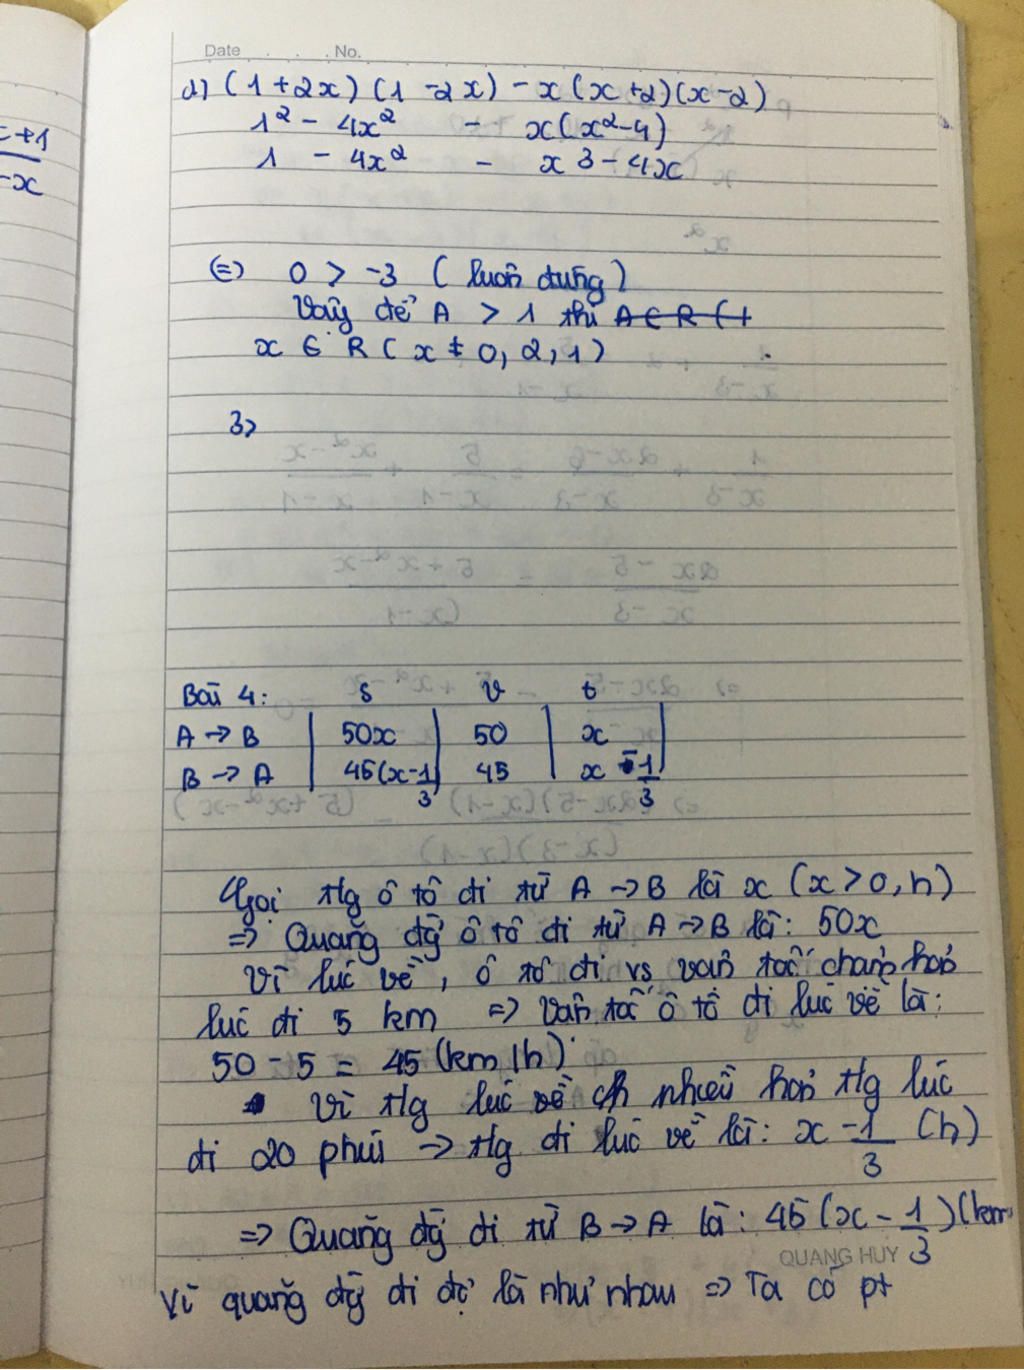 x+1
-x
Date . . . No.
d) (1+2x) (1-2x) - x(x+2)(x-2)
1² - 4x² - x(x²-4)
1 - 4x² - x3 - 4x
(=) 0 > -3 ( luôn đúng )
Vậy để A > 1 thì A ∈ R (+
x ∈ R ( x ≠ 0, 2, 1 )
3>
Bài 4: s v t
A → B | 50x | 50 | x |
B → A | 45(x-1/3) | 45 | x - 1/3 |
Gọi tlg ô tô đi từ A → B là x (x > 0, h)
=> Quãng đg ô tô đi từ A → B là: 50x
Vì lúc về, ô tô đi vs vận tốc chậm hơn
lúc đi 5 km => Vận tốc ô tô đi lúc về là:
50 - 5 = 45 (km/h)
Vì tlg lúc về nhiều hơn tlg lúc
đi 20 phút → tlg đi lúc về là: x - 1/3 (h)
=> Quãng đg đi từ B → A là: 45 (x - 1/3) (km
QUANG HUY
Vì quãng đg đi đc là như nhau => Ta có pt